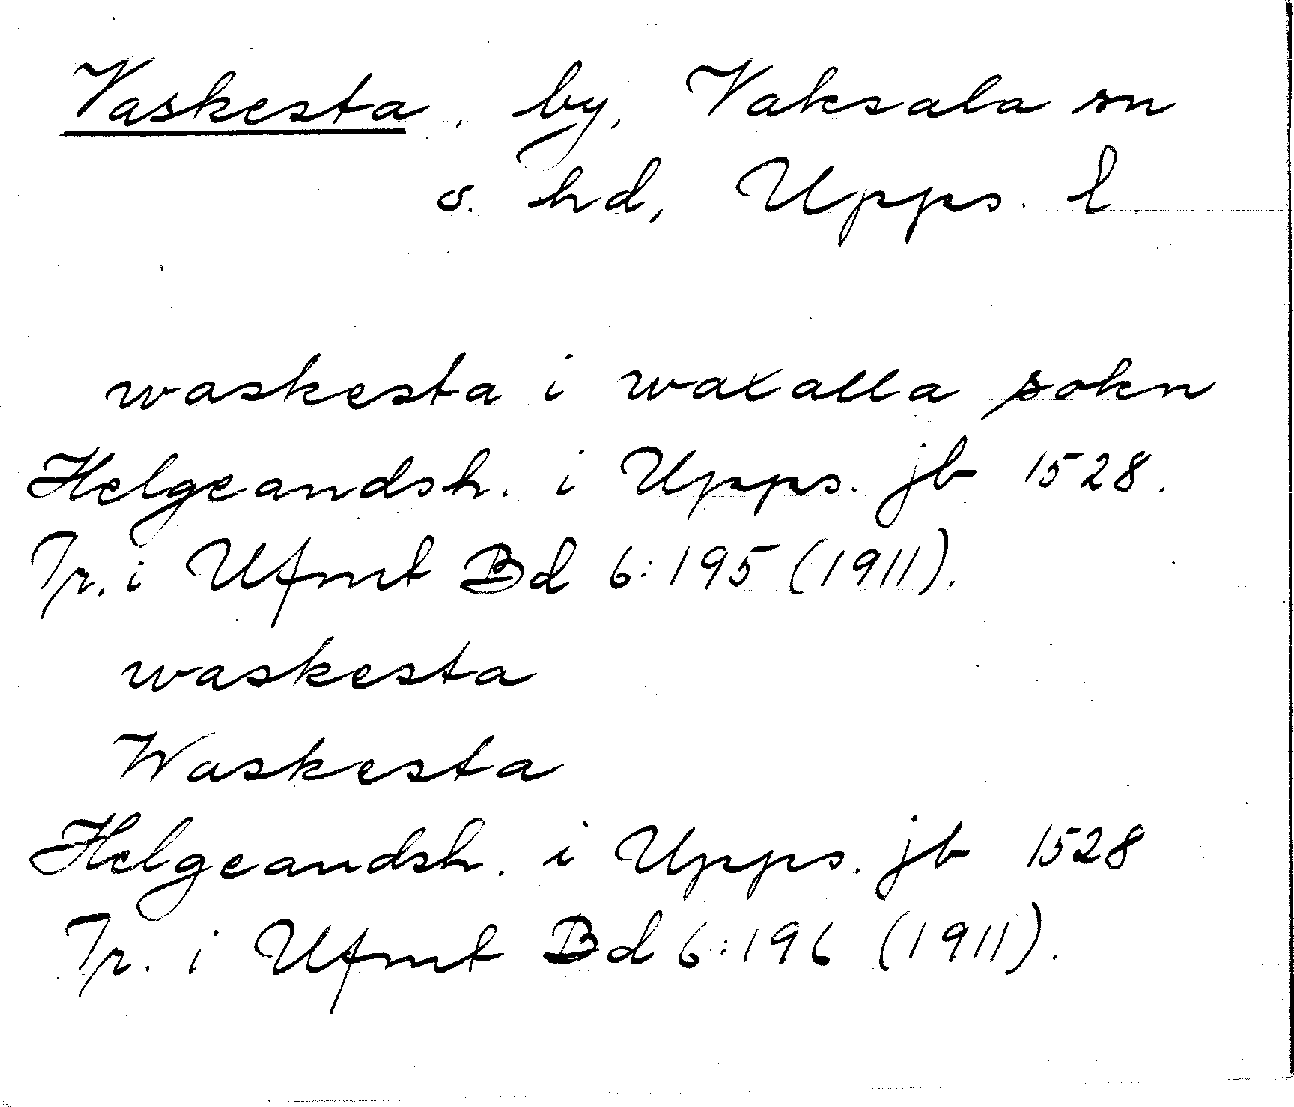 Vaskesta, by, Vaksala sn
o. hd, Upps. l
waskesta i waxalla sokn
Helgeandsh. i Upps. jb 1528.
Tr. i Ufmt Bd 6:195 (1911).
waskesta
Waskesta
Helgeandsh. i Upps. jb 1528
Tr. i Ufmt Bd 6:196 (1911).